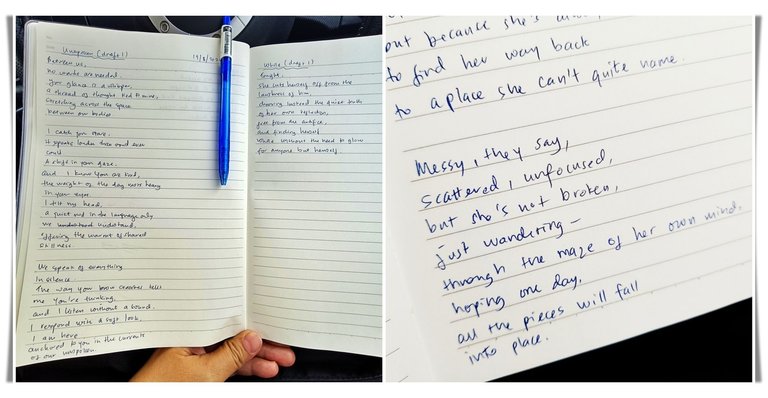 Unspoken (draft 1)
Between us,
no words are needed.
Your glance is a whisper,
a thread of thought tied to mine,
stretching across the space
between our bodies
I catch you stare,
it speaks louder than words ever
could
A shift in your gaze,
and I know you are tired,
the weight of the day rests heavy
in your eyes.
I tilt my head,
a quiet nod in the language only
we understand
offering the warmth of shared
stillness.
We speak of everything
in silence.
The way your brow creases tells
me you're thinking,
and I listen without a sound.
I respond with a soft look,
I am here
anchored to you in the currents
of our unspoken
While (draft 1)
Tonight,
She cuts herself off from the
loudness of him,
choosing instead the quiet truth
of her own reflection,
free from the artifice,
and finding herself
whole without the need to glow
for anyone but herself.
but because she's
to find her way back
to a place she can't quite name.
Messy, they say,
scattered, unfocused,
but she's not broken,
just wandering –
through the maze of her own mind,
hoping one day,
all the pieces will fall
into place.